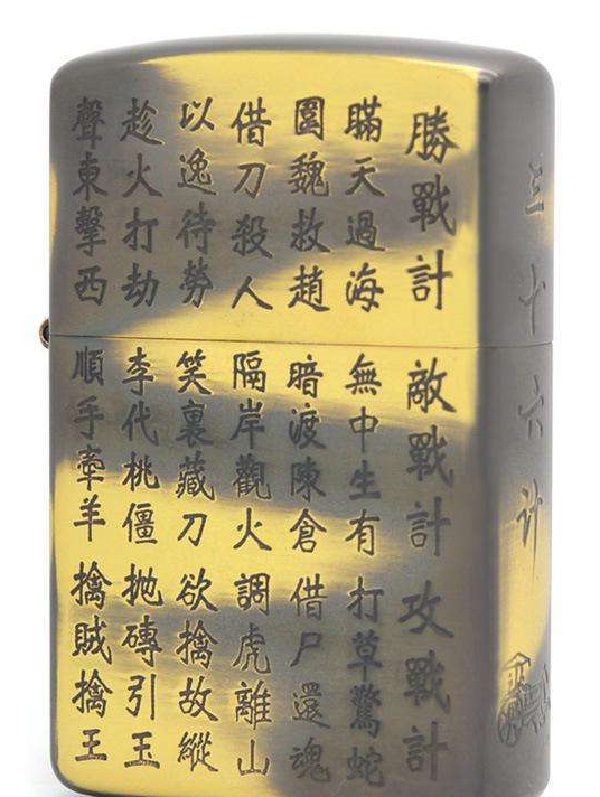 三十六计
勝戰計
瞞天過海
圍魏救趙
借刀殺人
以逸待勞
趁火打劫
聲東擊西
敵戰計
無中生有
暗渡陳倉
隔岸觀火
笑裏藏刀
李代桃僵
順手牽羊
攻戰計
打草驚蛇
借尸還魂
調虎離山
欲擒故縱
拋磚引玉
擒賊擒王